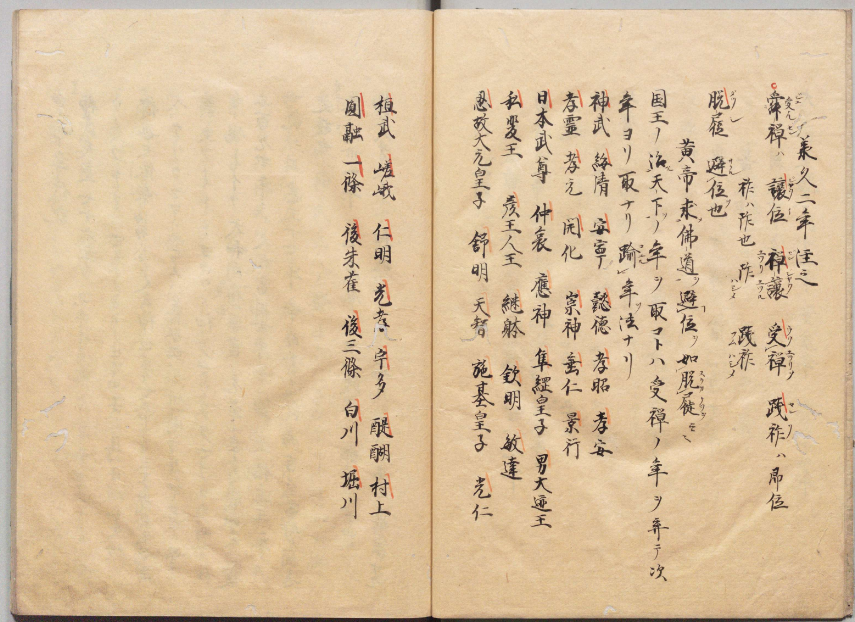 承久二年注之
舜禅ハ 譲位 禅譲 受禅 践祚ハ 即位
祚ハ 阼也 阼 践祚
脱屣 避位也
黄帝求佛道避位ヲ如脱屣
国王ノ治天下ノ年ヲ取コトハ受禅ノ年ヲ弃テ次
年ヨリ取ナリ踰年法ナリ
神武 綏靖 安寧 懿徳 孝昭 孝安
孝霊 孝元 開化 崇神 垂仁 景行
日本武尊 仲哀 應神 隼総皇子 男大迹王
私斐王 彦主人王 継躰 欽明 敏達
忍坂大兄皇子 舒明 天智 施基皇子 光仁
桓武 嵯峨 仁明 光孝 宇多 醍醐 村上
圓融 一條 後朱雀 後三條 白川 堀川